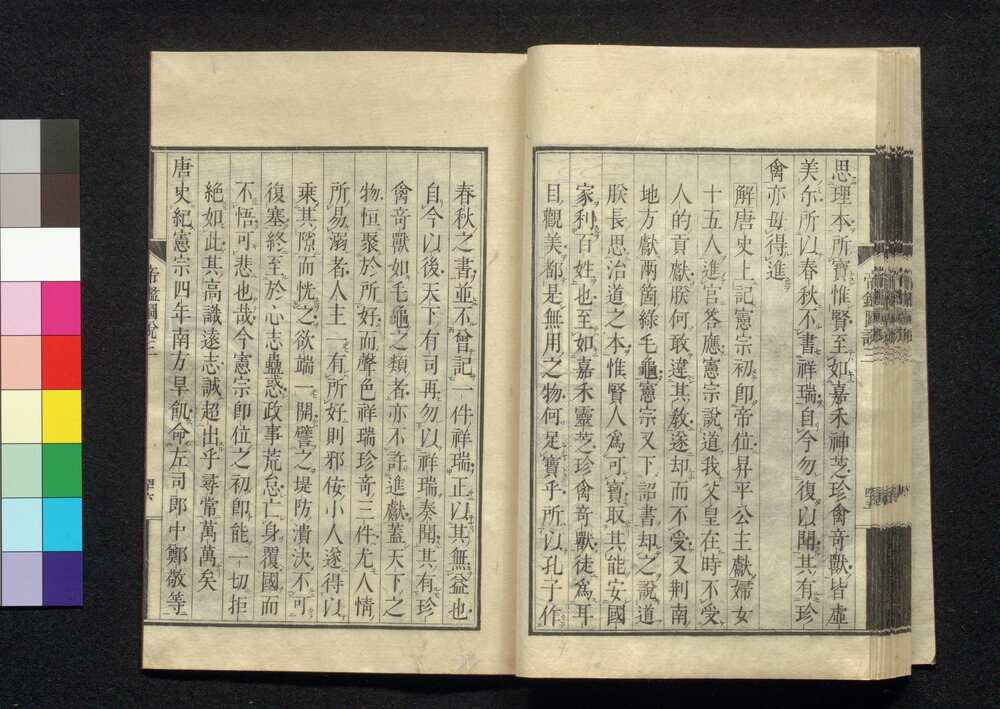 思理本所寶惟賢至如嘉禾神芝珍禽奇獸皆虛
美尓所以春秋不書祥瑞自今勿復以聞其有珍
禽亦毋得進
解唐史上記憲宗初即帝位昇平公主獻婦女
十五人進宮答應憲宗說道我父皇在時不受
人的貢獻朕何敢違其教遂却而不受又荆南
地方獻兩箇綠毛龜憲宗又下詔書却之說道
朕長思治道之本惟賢人爲可寶取其能安國
家利百姓也至如嘉禾靈芝珍禽奇獸徒爲耳
目觀美都是無用之物何足寶乎所以孔子作
春秋之書並不曾記一件祥瑞正以其無益也
自今以後天下有司再勿以祥瑞奏聞其有珍
禽奇獸如毛龜之類者亦不許進獻蓋天下之
物恒聚於所好而聲色祥瑞珍奇三件尤人情
所易溺者人主一有所好則邪佞小人遂得以
乘其隙而怳之欲端一開譬之堤防潰決不可
復塞終至於心志蠱惑政事荒怠亡身覆國而
不悟可悲也哉今憲宗即位之初即能一切拒
絶如此其高識遠志誠超出乎尋常萬萬矣
唐史紀憲宗四年南方旱飢命左司郎中鄭敬等
帝鑑圖說三